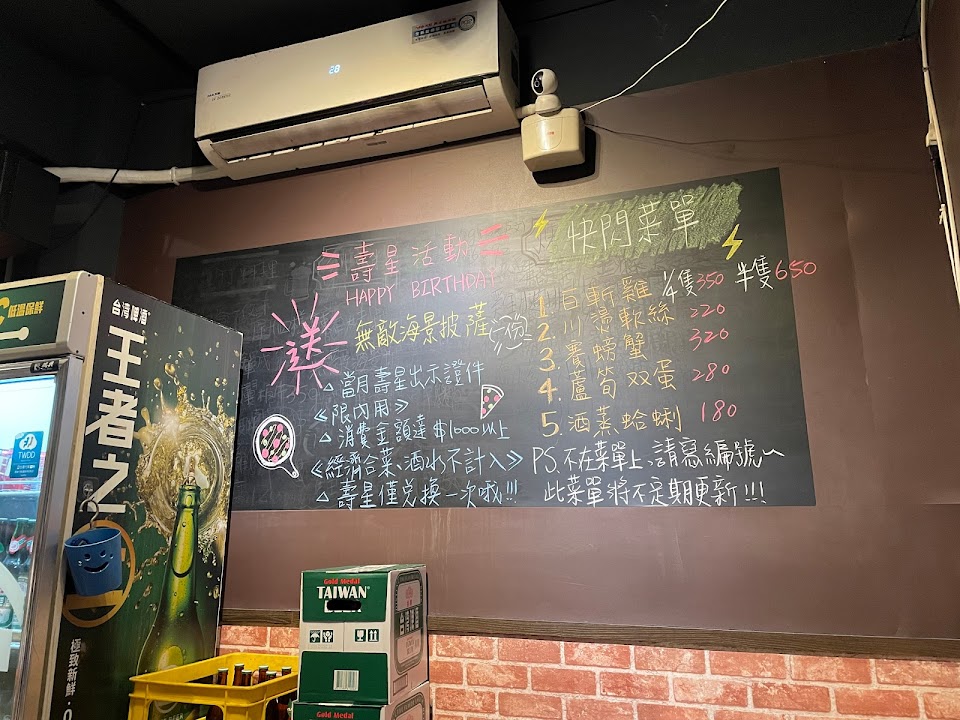 28
壽星活動
HAPPY BIRTHDAY
送
無敵海景披薩一份
△當月壽星出示證件
《限內用》
△消費金額達$1000以上
《經濟合菜、酒水不計入》
△壽星僅兌換一次哦!!!
快閃菜單
1. 百斬雞 1/4隻350 半隻650
2. 川燙軟絲 220
3. 賽螃蟹 320
4. 蘆筍双蛋 280
5. 酒蒸蛤蜊 180
PS.不在菜單上、請寫編號~
此菜單將不定期更新!!!
低溫保鮮
台湾啤酒
王者之
極致新鮮
TWQD
Gold Medal
TAIWAN
Gold Medal